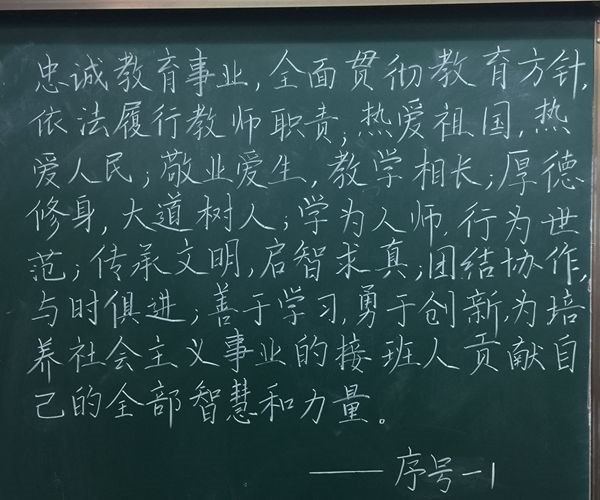 忠诚教育事业,全面贯彻教育方针,
依法履行教师职责;热爱祖国,热
爱人民;敬业爱生,教学相长;厚德
修身,大道树人;学为人师,行为世
范;传承文明,启智求真;团结协作,
与时俱进;善于学习,勇于创新,为培
养社会主义事业的接班人贡献自
己的全部智慧和力量。
——序号-1